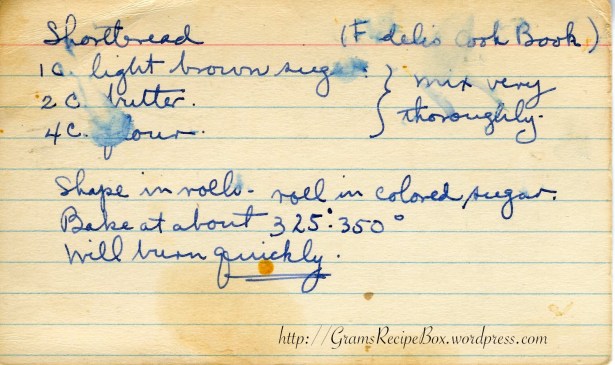 Shortbread (Fidelio Cook Book)
1 c. light brown sugar.
2 c. butter.
4 c. flour.
} mix very
thoroughly.
Shape in rolls - roll in colored sugar.
Bake at about 325°-350°
Will burn quickly.
http://GramsRecipeBox.wordpress.com